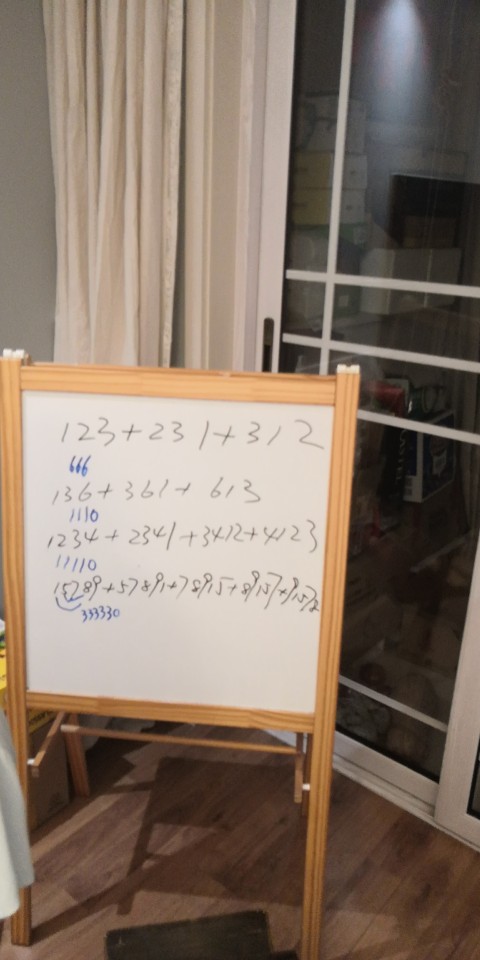 123+231+312
666
136+361+613
1110
1234+2341+3412+4123
11110
15789+57891+78915+89157+91578
333330